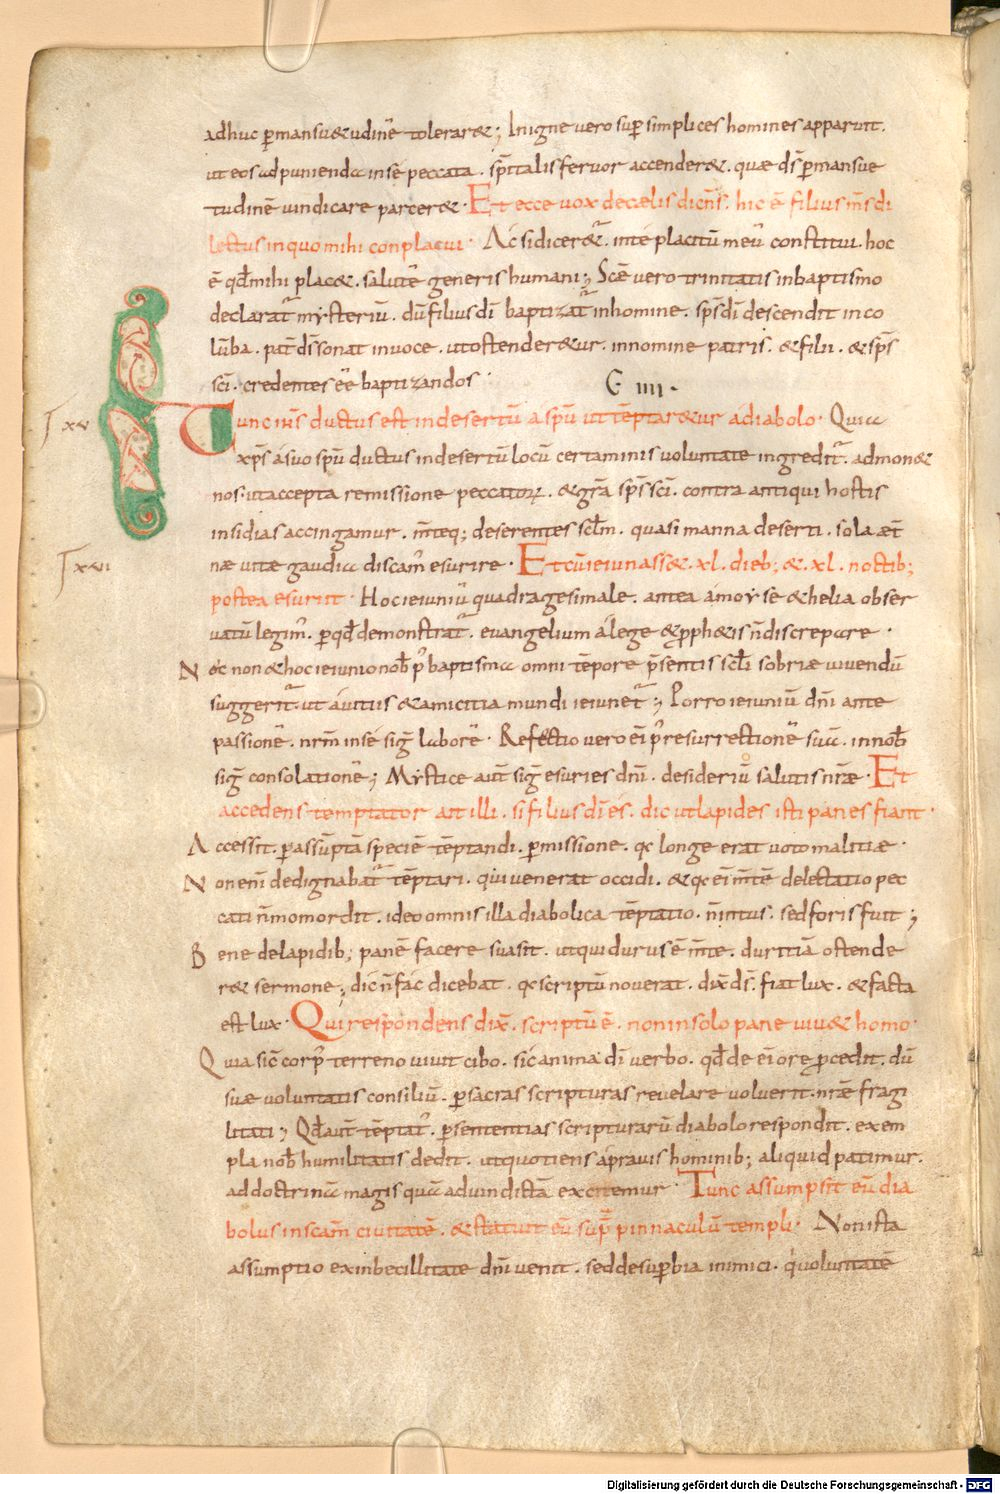 adhuc p̄mansu&udinē tolerar&; Inigne vero sup̄ simplices homines apparuit.
ut eos ad punienda in se peccata. sp̄italis fervor accender&. quae d̄s p̄mansue
tudinē vindicare parcer&. Et ecce vox de caelis dicēns. hic ē filius m̄s di
lectus in quo mihi conplacui. Ac si dicer&ur. inte placitū meū constitui. hoc
ē qd̄ mihi plac&. salutē generis humani; Scē vero trinitatis inbaptismo
declarat̄ mysteriū. dū filius dī baptizat̄ inhomine. sp̄s dī descendit in co
lūba. pat̄ d̄s sonat in voce. ut ostender&ur. innomine patris. & filii. & sp̄s
scī. credentes ēe baptizandos.
C IIII.
Tunc ih̄s ductus est in desertū a spū ut tēptar&ur a diabolo. Quia
T xv
xp̄s a suo spū ductus in desertū locū certaminis voluntate ingredit̄. admon&
nos. ut accepta remissione peccatorꝝ. & gr̄a sp̄s scī. contra antiqui hostis
insidias accingamur. m̄teq; deserentes sc̄lm. quasi manna deserti. sola aet̄
nae vitae gaudia discam̄ esurire. Et cū ieiunass&. xl. dieb; &. xl. noctib;
T xvi
postea esuriit. Hoc ieiuniū quadragesimale. antea a moyse & helia obser
vatū legim̄. p̄ qd̄ demonstrat̄. evangelium a lege & p̄ph&is n̄ discrepare.
Nec non & hoc ieiunio nob̄ p̄ baptisma omni tēpore p̄sentis sc̄li sobriae vivendū
suggerit̄. ut a vitiis & amicitia mundi ieiunet̄; Porro ieiuniū dn̄i ante
passionē. nrm̄ in se siḡ laborē. Refectio vero eī p̄ resurrectionē sua. in nob̄
siḡ consolationē; Mystice aut̄ siḡ esuries dn̄i. desideriū salutis nr̄ae. Et
accedens temptator ait illi. si filius dī es. dic ut lapides isti panes fiant.
Accessit. p̄ assūptā speciē tēptandi. p̄missione. qc longe erat voto malitiae.
Non eni dedignabat̄ tēptari. qui venerat occidi. & qc eī m̄tē delectatio pec
cati n̄ momordit. ideo omnis illa diabolica tēptatio. n̄ intus. sed foris fuit;
Bene de lapidib; panē facere suasit. ut qui durus ē m̄te. duritiā ostende
r& sermone; dic n̄ fac dicebat. qc scriptū noverat. dix̄ d̄s. fiat lux. & facta
est lux. Qui respondens dix̄. scriptū ē. non in solo pane viv& homo.
Quia sic̄ corp̄ terreno vivit cibo. sic anima dī verbo. qd̄ de eī ore p̄cedit. dū
suae voluntatis consiliū. p̄ sacras scripturas revelare voluerit. nr̄ae fragi
litati; Qd̄ aut̄ tēptat̄. p̄ sententias scripturarū diabolo respondit. exem
pla nob̄ humilitatis dedit. ut quotiens a pravis hominib; aliquid patimur.
ad doctrina magis qua ad vindictā excitemur. Tunc assumpsit eū dia
bolus in scam̄ civitatē. & statuit eū sup̄ pinnaculū templi. Non ista
assumptio ex inbecillitate dn̄i venit. sed de sup̄bia inimici. q̇ voluntatē
Digitalisierung gefördert durch die Deutsche Forschungsgemeinschaft - DFG